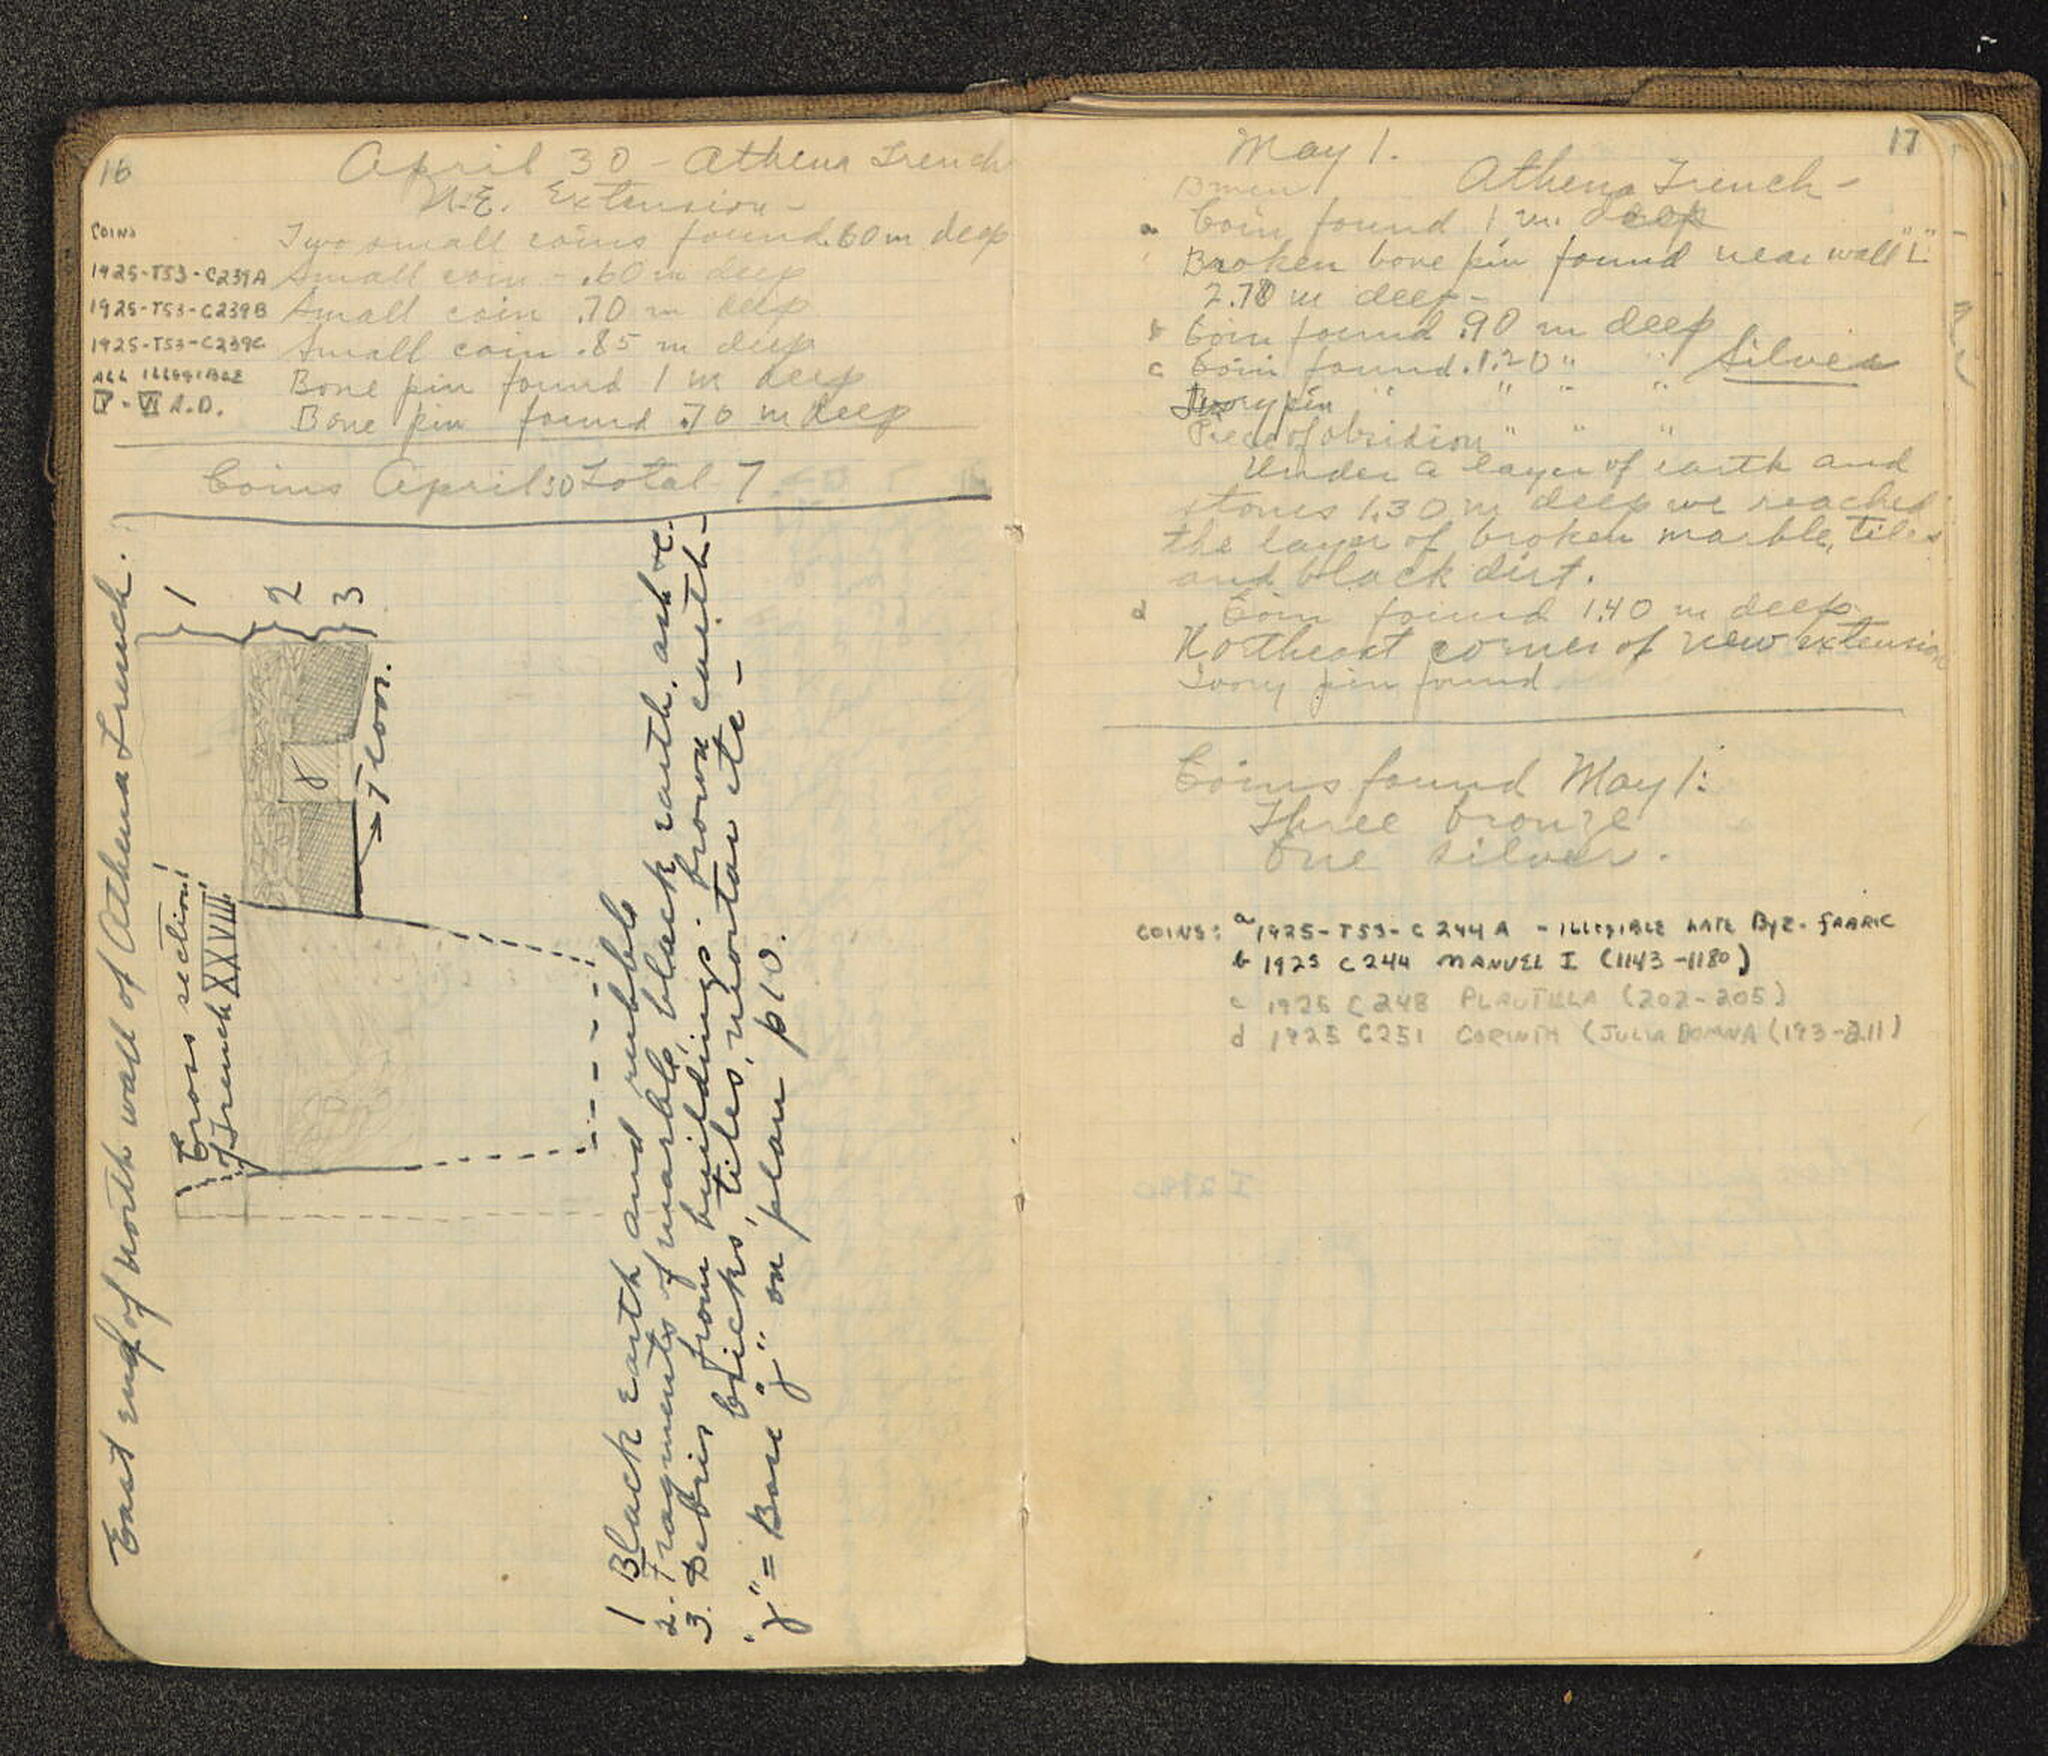 16
April 30 - Athena Trench
N.E. Extension -
COINS
Two small coins found .60 m deep
1925-T53-C239A Small coin - .60 m deep
1925-T53-C239B Small coin .70 m deep
1925-T53-C239C Small coin .85 m deep
ALL ILLEGIBLE Bone pin found 1 m deep
IV - VI A.D. Bone pin found .70 m deep
Coins April 30 Total 7
East end of north wall of Athena Trench.
1 2 3
Floor.
Cross section
of Trench XXVIII
1 Black earth and rubble
2. Fragments of marble, black earth, ash etc.
3. Debris from buildings. brown earth -
bricks, tiles, mortar etc -
"y" = Base "y" on plan p 10.
17
May 1.
Athena Trench -
a Coin found 1 m. deep
Broken bone pin found near wall "L"
2.70 m deep -
b Coin found .90 m deep
c Coin found 1.20 " " Silver
Ivory pin " " " "
Piece of obsidion " " "
Under a layer of earth and
stones 1.30 m deep we reached
the layer of broken marble, tiles
and black dirt.
d Coin found 1.40 m deep.
Northeast corner of new extension
Ivory pin found
Coins found May 1:
Three bronze
One silver.
COINS: a 1925-T53-C244A - ILLEGIBLE LATE BYZ. FABRIC
b 1925 C244 MANUEL I (1143-1180)
c 1925 C248 PLAUTILLA (202-205)
d 1925 C251 CORINTH (JULIA DOMNA (193-211)